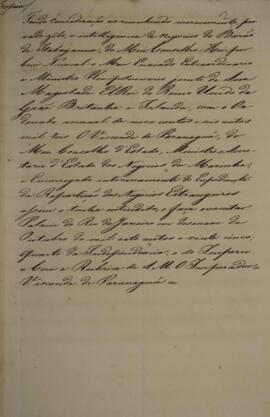 (Copia)
Tendo consideração ao reconhecido merecimento, pro
vado zelo, e intelligencia de negocios do Barão
de Itabayana, do Meu Conselho: Hei por
bem Nomeal-o Meu Enviado Extraordinario
e Ministro Plenipotenciario junto de Sua
Magestade El Rei do Reino Unido da
Gram Bretanha e Irlanda, com o Or
denado annual de nove contos e seis centos
mil reis. O Visconde de Paranaguá, do
Meu Conselho d'Estado, Ministro e Secre
tario d'Estado dos Negocios da Marinha,
e Encarregado interinamente do Expediente
da Repartição dos Negocios Estrangeiros
assim o tenha entendido, e faça executar.
Palacio do Rio de Janeiro em desenove de
Outubro de mil oito centos e vinte cinco,
quarto da Independencia, e do Imperio
= Com a Rubrica de S. M. O Imperador =
Visconde de Paranaguá =